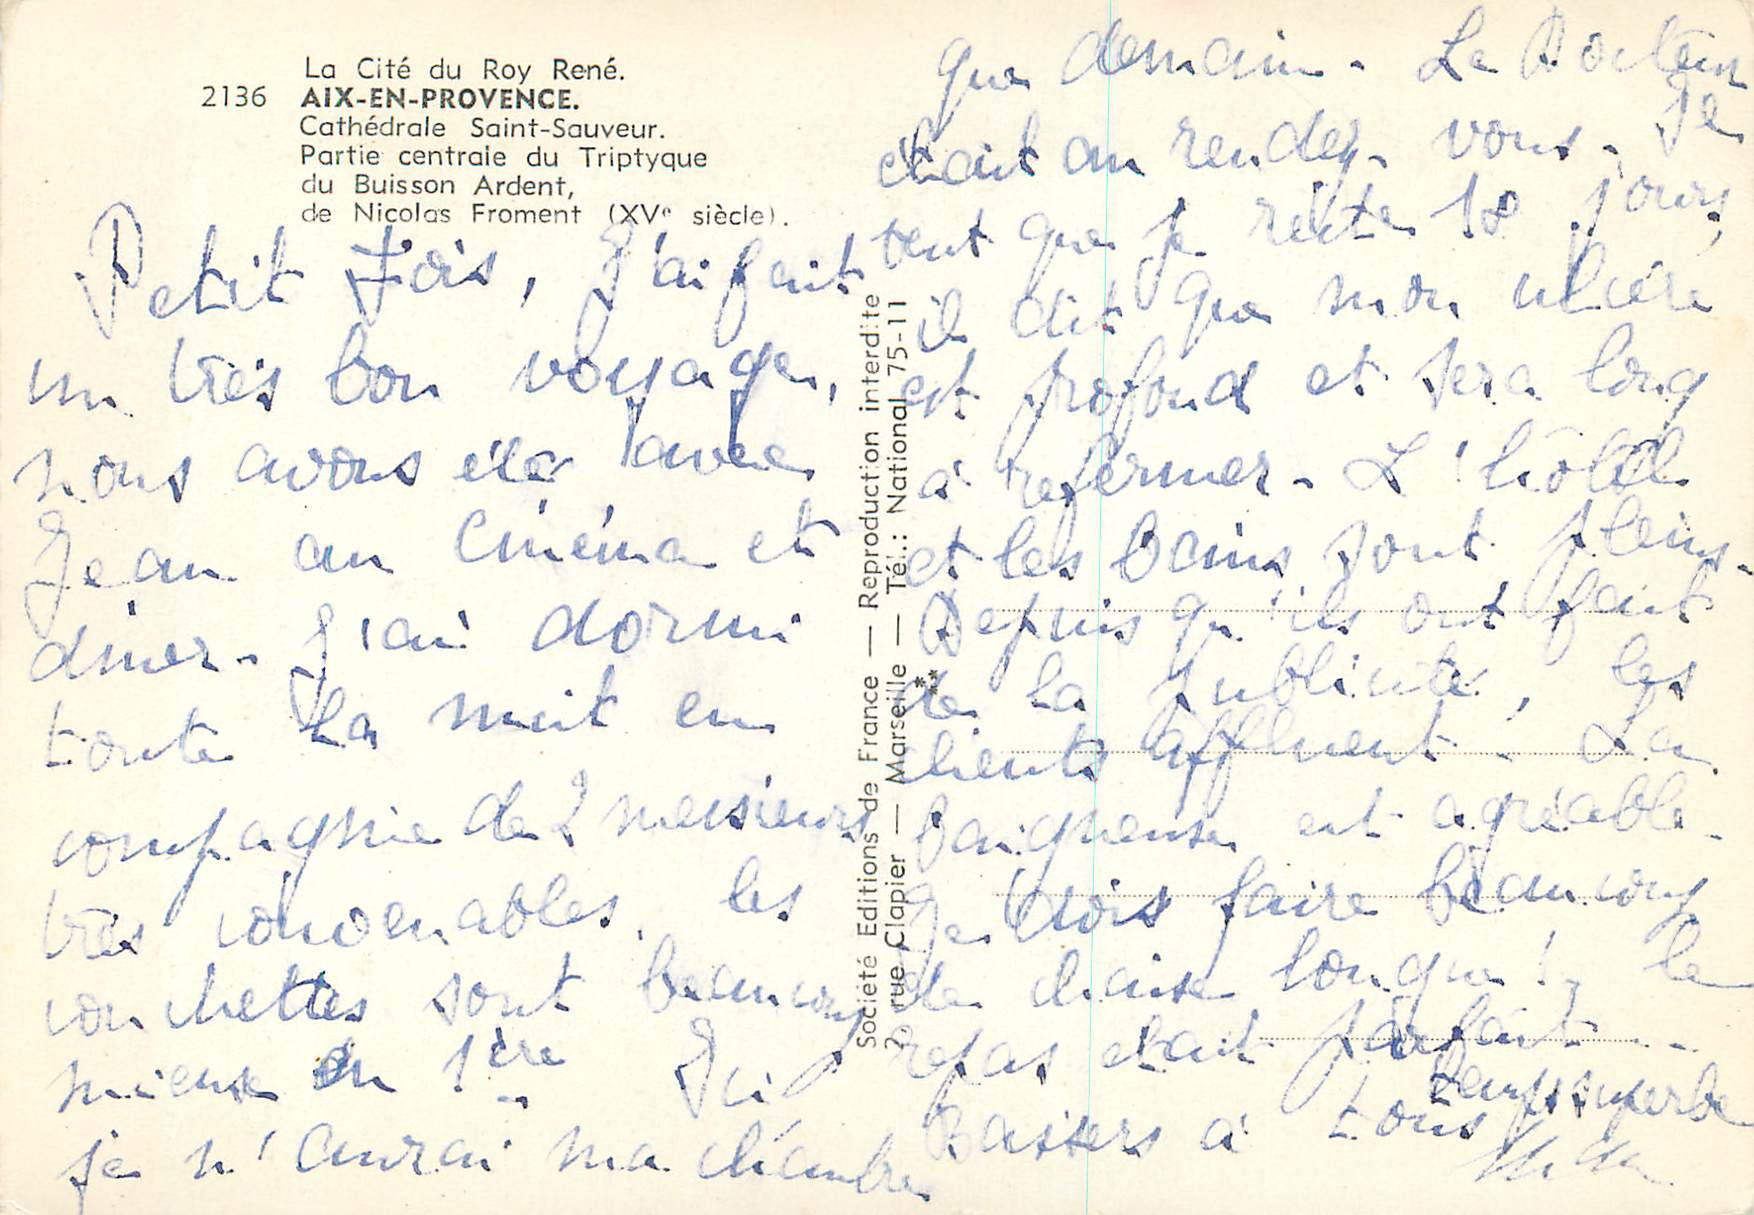 La Cité du Roy René.
2136 AIX-EN-PROVENCE.
Cathédrale Saint-Sauveur.
Partie centrale du Triptyque
du Buisson Ardent,
de Nicolas Froment (XVe siècle).
Petit Jois, J'ai fait
un très bon voyage,
nous avons été avec
Jean au cinéma et
diner - J'ai dormi
toute la nuit en
compagnie de 2 messieurs
très convenables. les
couchettes sont beaucoup
mieux en 1ère - Ici
je n'aurai ma chambre
Société Editions de France — Reproduction interdite
2, rue Clapier — Marseille — Tél.: National 75-11
que demain - Le Docteur
était au rendez-vous - Il
veut que je reste 18 jours,
il dit que mon ulcère
est profond et sera long
à refermer - L'hôtel
et les bains sont pleins -
Depuis qu'ils ont fait
de la publicité, les
clients affluent - La
baigneuse est agréable -
Je dois faire beaucoup
de chaise longue ! le
repas était parfait - -
temps superbe
Baisers à tous